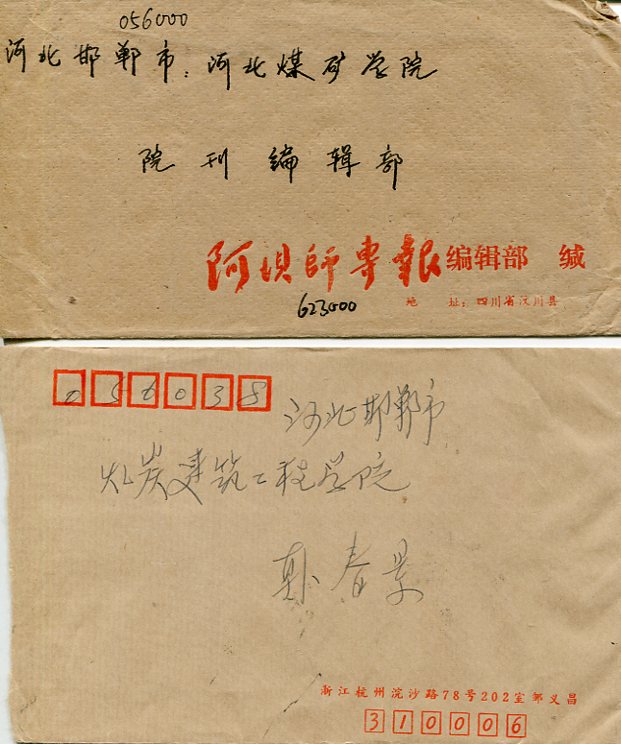 056000
河北邯郸市:河北煤矿学院
院刊编辑部
阿坝師專報编辑部 缄
623000 地 址:四川省汶川县
056038 河北邯郸市
煤炭建筑工程学院
春景
浙江杭州浣沙路78号202室邹义昌
310006